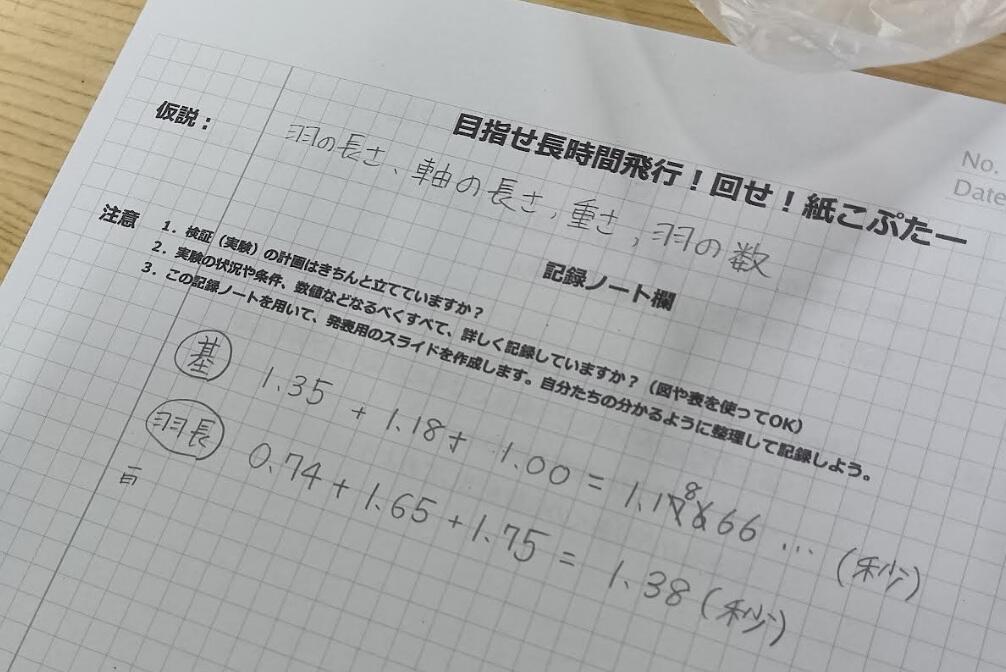 No.
Date
目指せ長時間飛行！回せ！紙こぷたー
仮説：
羽の長さ、軸の長さ，重さ，羽の数
記録ノート欄
注意
1．検証（実験）の計画はきちんと立てていますか？
2．実験の状況や条件、数値などなるべくすべて、詳しく記録していますか？（図や表を使ってOK）
3．この記録ノートを用いて、発表用のスライドを作成します。自分たちの分かるように整理して記録しよう。
基 1.35 + 1.18 + 1.00 = 1.17866 … (秒)
羽長 0.74 + 1.65 + 1.75 = 1.38 (秒)